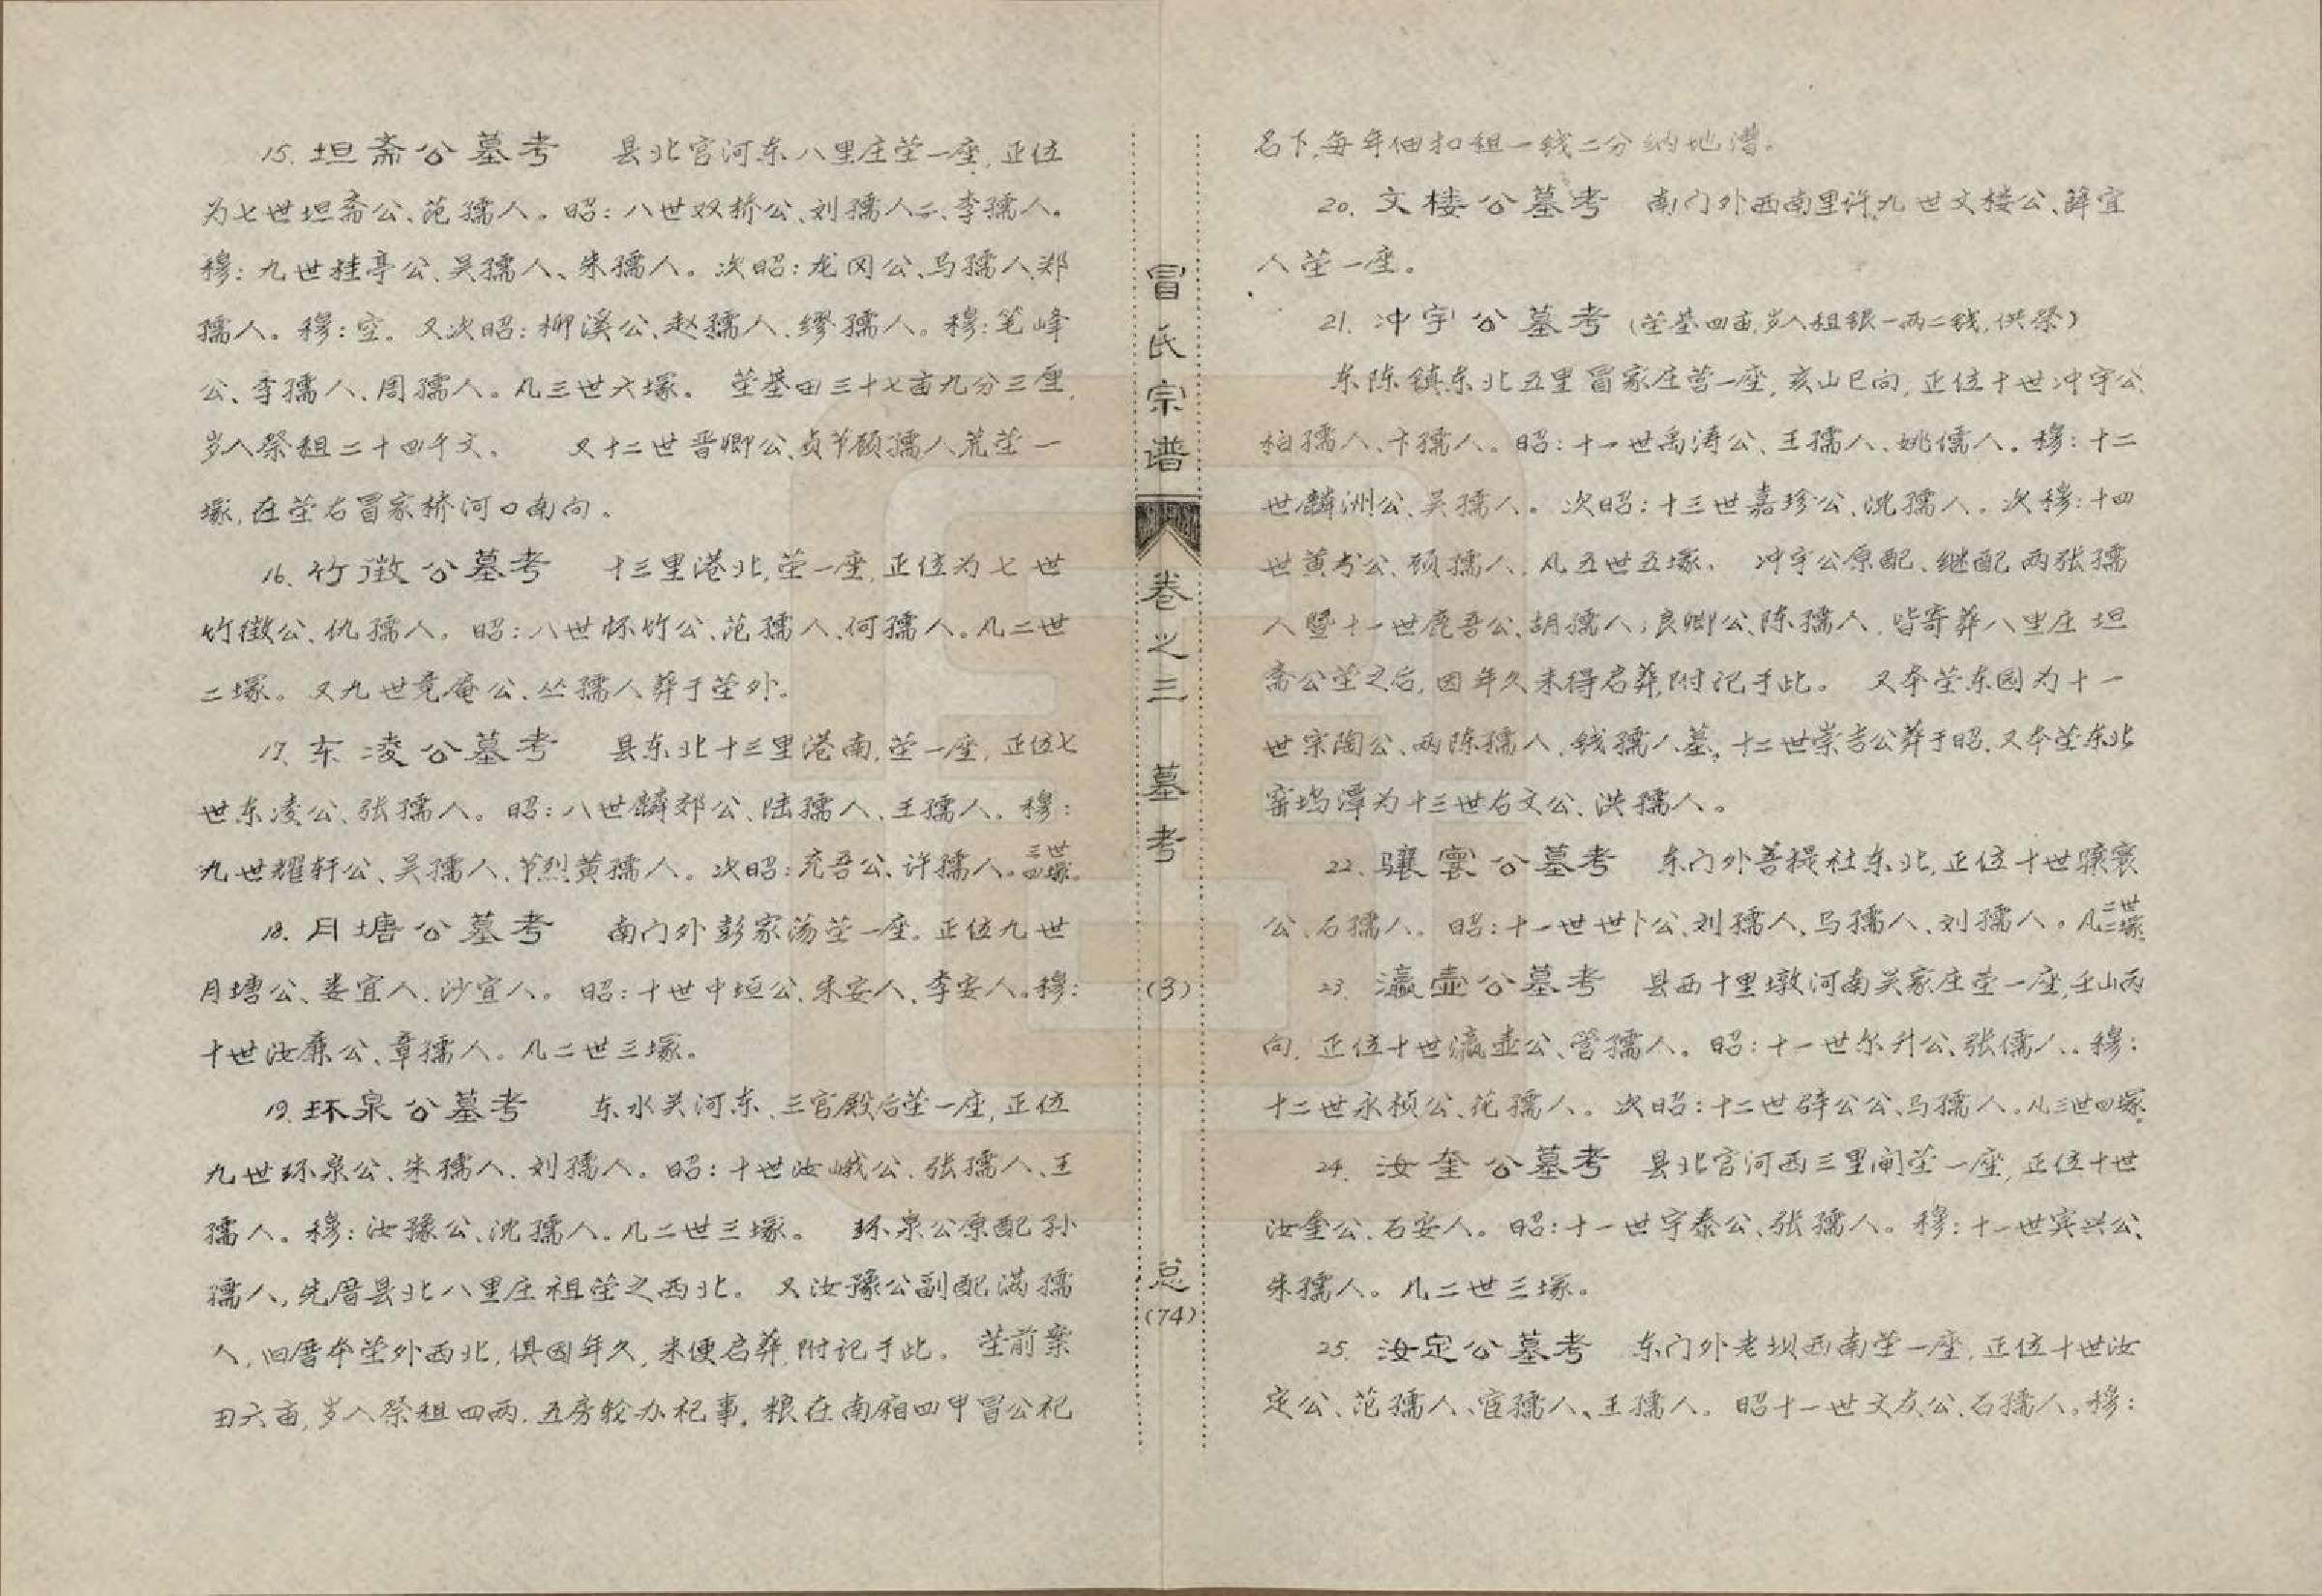 15. 坦斋公墓考 县北官河东八里庄茔一座,正位
为七世坦斋公、范孺人。昭:八世双桥公、刘孺人二、李孺人。
穆:九世桂亭公、吴孺人、朱孺人。次昭:龙冈公、马孺人、郑
孺人。穆:空。又次昭:柳溪公、赵孺人、缪孺人。穆:笔峰
公、李孺人、周孺人。凡三世六塚。 茔基田三十七亩九分三厘,
岁入祭租二十四千文。 又十二世晋卿公、贞节顾孺人荒茔一
塚,在茔右冒家桥河口南向。
16. 竹徵公墓考 十三里港北,茔一座,正位为七世
竹徵公、仇孺人。昭:八世怀竹公、范孺人、何孺人。凡二世
二塚。又九世竟庵公、丛孺人葬于茔外。
17. 东凌公墓考 县东北十三里港南,茔一座,正位七
世东凌公、张孺人。昭:八世麟郊公、陆孺人、王孺人。穆:
九世耀轩公、吴孺人、节烈黄孺人。次昭:充吾公、许孺人。三世四塚。
18. 月塘公墓考 南门外彭家荡茔一座。正位九世
月塘公、娄宜人、沙宜人。昭:十世中垣公、朱安人、李安人。穆:
十世汝廉公、章孺人。凡二世三塚。
19. 环泉公墓考 东水关河东、三官殿后茔一座,正位
九世环泉公、朱孺人、刘孺人。昭:十世汝峨公、张孺人、王
孺人。穆:汝豫公、沈孺人。凡二世三塚。 环泉公原配孙
孺人,先厝县北八里庄祖茔之西北。 又汝豫公副配满孺
人,旧厝本茔外西北,俱因年久,未便启葬,附记于此。 茔前案
田六亩,岁入祭租四两,五房轮办祀事,粮在南厢四甲冒公祀
冒氏宗谱
卷之三 墓考
(3)
总
(74)
名下,每年佃扣租一钱二分纳地漕。
20. 文楼公墓考 南门外西南里许,九世文楼公、薛宜
人茔一座。
21. 冲宇公墓考(茔基四亩,岁入租银一两二钱,供祭)
东陈镇东北五里冒家庄营一座,亥山巳向,正位十世冲宇公、
柏孺人、卞孺人。昭:十一世禹涛公、王孺人、姚儒人。穆:十二
世麟洲公、吴孺人。次昭:十三世嘉珍公、沈孺人。次穆:十四
世黄书公、顾孺人,凡五世五塚。 冲宇公原配、继配两张孺
人暨十一世鹿吾公、胡孺人;良卿公、陈孺人,皆寄葬八里庄坦
斋公茔之后,因年久未得启葬,附记于此。 又本茔东园为十一
世宗陶公、两陈孺人、钱孺人墓,十二世崇吉公葬于昭,又本茔东北
窑坞潭为十三世右文公、洪孺人。
22. 骧寰公墓考 东门外菩提社东北,正位十世骧寰
公、石孺人。昭:十一世世卜公、刘孺人、马孺人、刘孺人。凡二世二塚。
23. 瀛壶公墓考 县西十里墩河南关家庄茔一座,壬山丙
向,正位十世瀛壶公、管孺人。昭:十一世尔升公、张儒人。穆:
十二世永桢公、范孺人。次昭:十二世辟公公、马孺人。凡三世四塚。
24. 汝奎公墓考 县北官河西三里闸茔一座,正位十世
汝奎公、石安人。昭:十一世宇泰公、张孺人。穆:十一世宾兴公、
朱孺人。凡二世三塚。
25. 汝定公墓考 东门外老坝西南茔一座,正位十世汝
定公、范孺人、宦孺人、王孺人。昭十一世文友公、石孺人。穆: